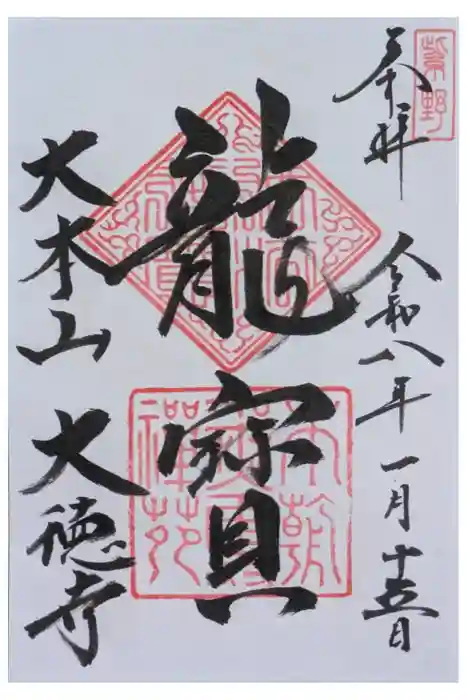 紫野
奉拝
令和八年一月十五日
龍寳
本朝
禪苑
大本山 大徳寺